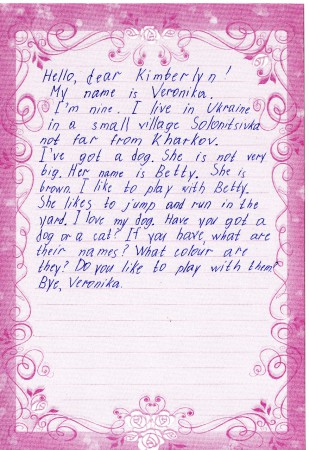 Hello, dear Kimberlyn!
My name is Veronika.
I'm nine. I live in Ukraine
in a small village Solonitsivka
not far from Kharkov.
I've got a dog. She is not very
big. Her name is Betty. She is
brown. I like to play with Betty.
She likes to jump and run in the
yard. I love my dog. Have you got a
dog or a cat? If you have, what are
their names? What colour are
they? Do you like to play with them?
Bye, Veronika.